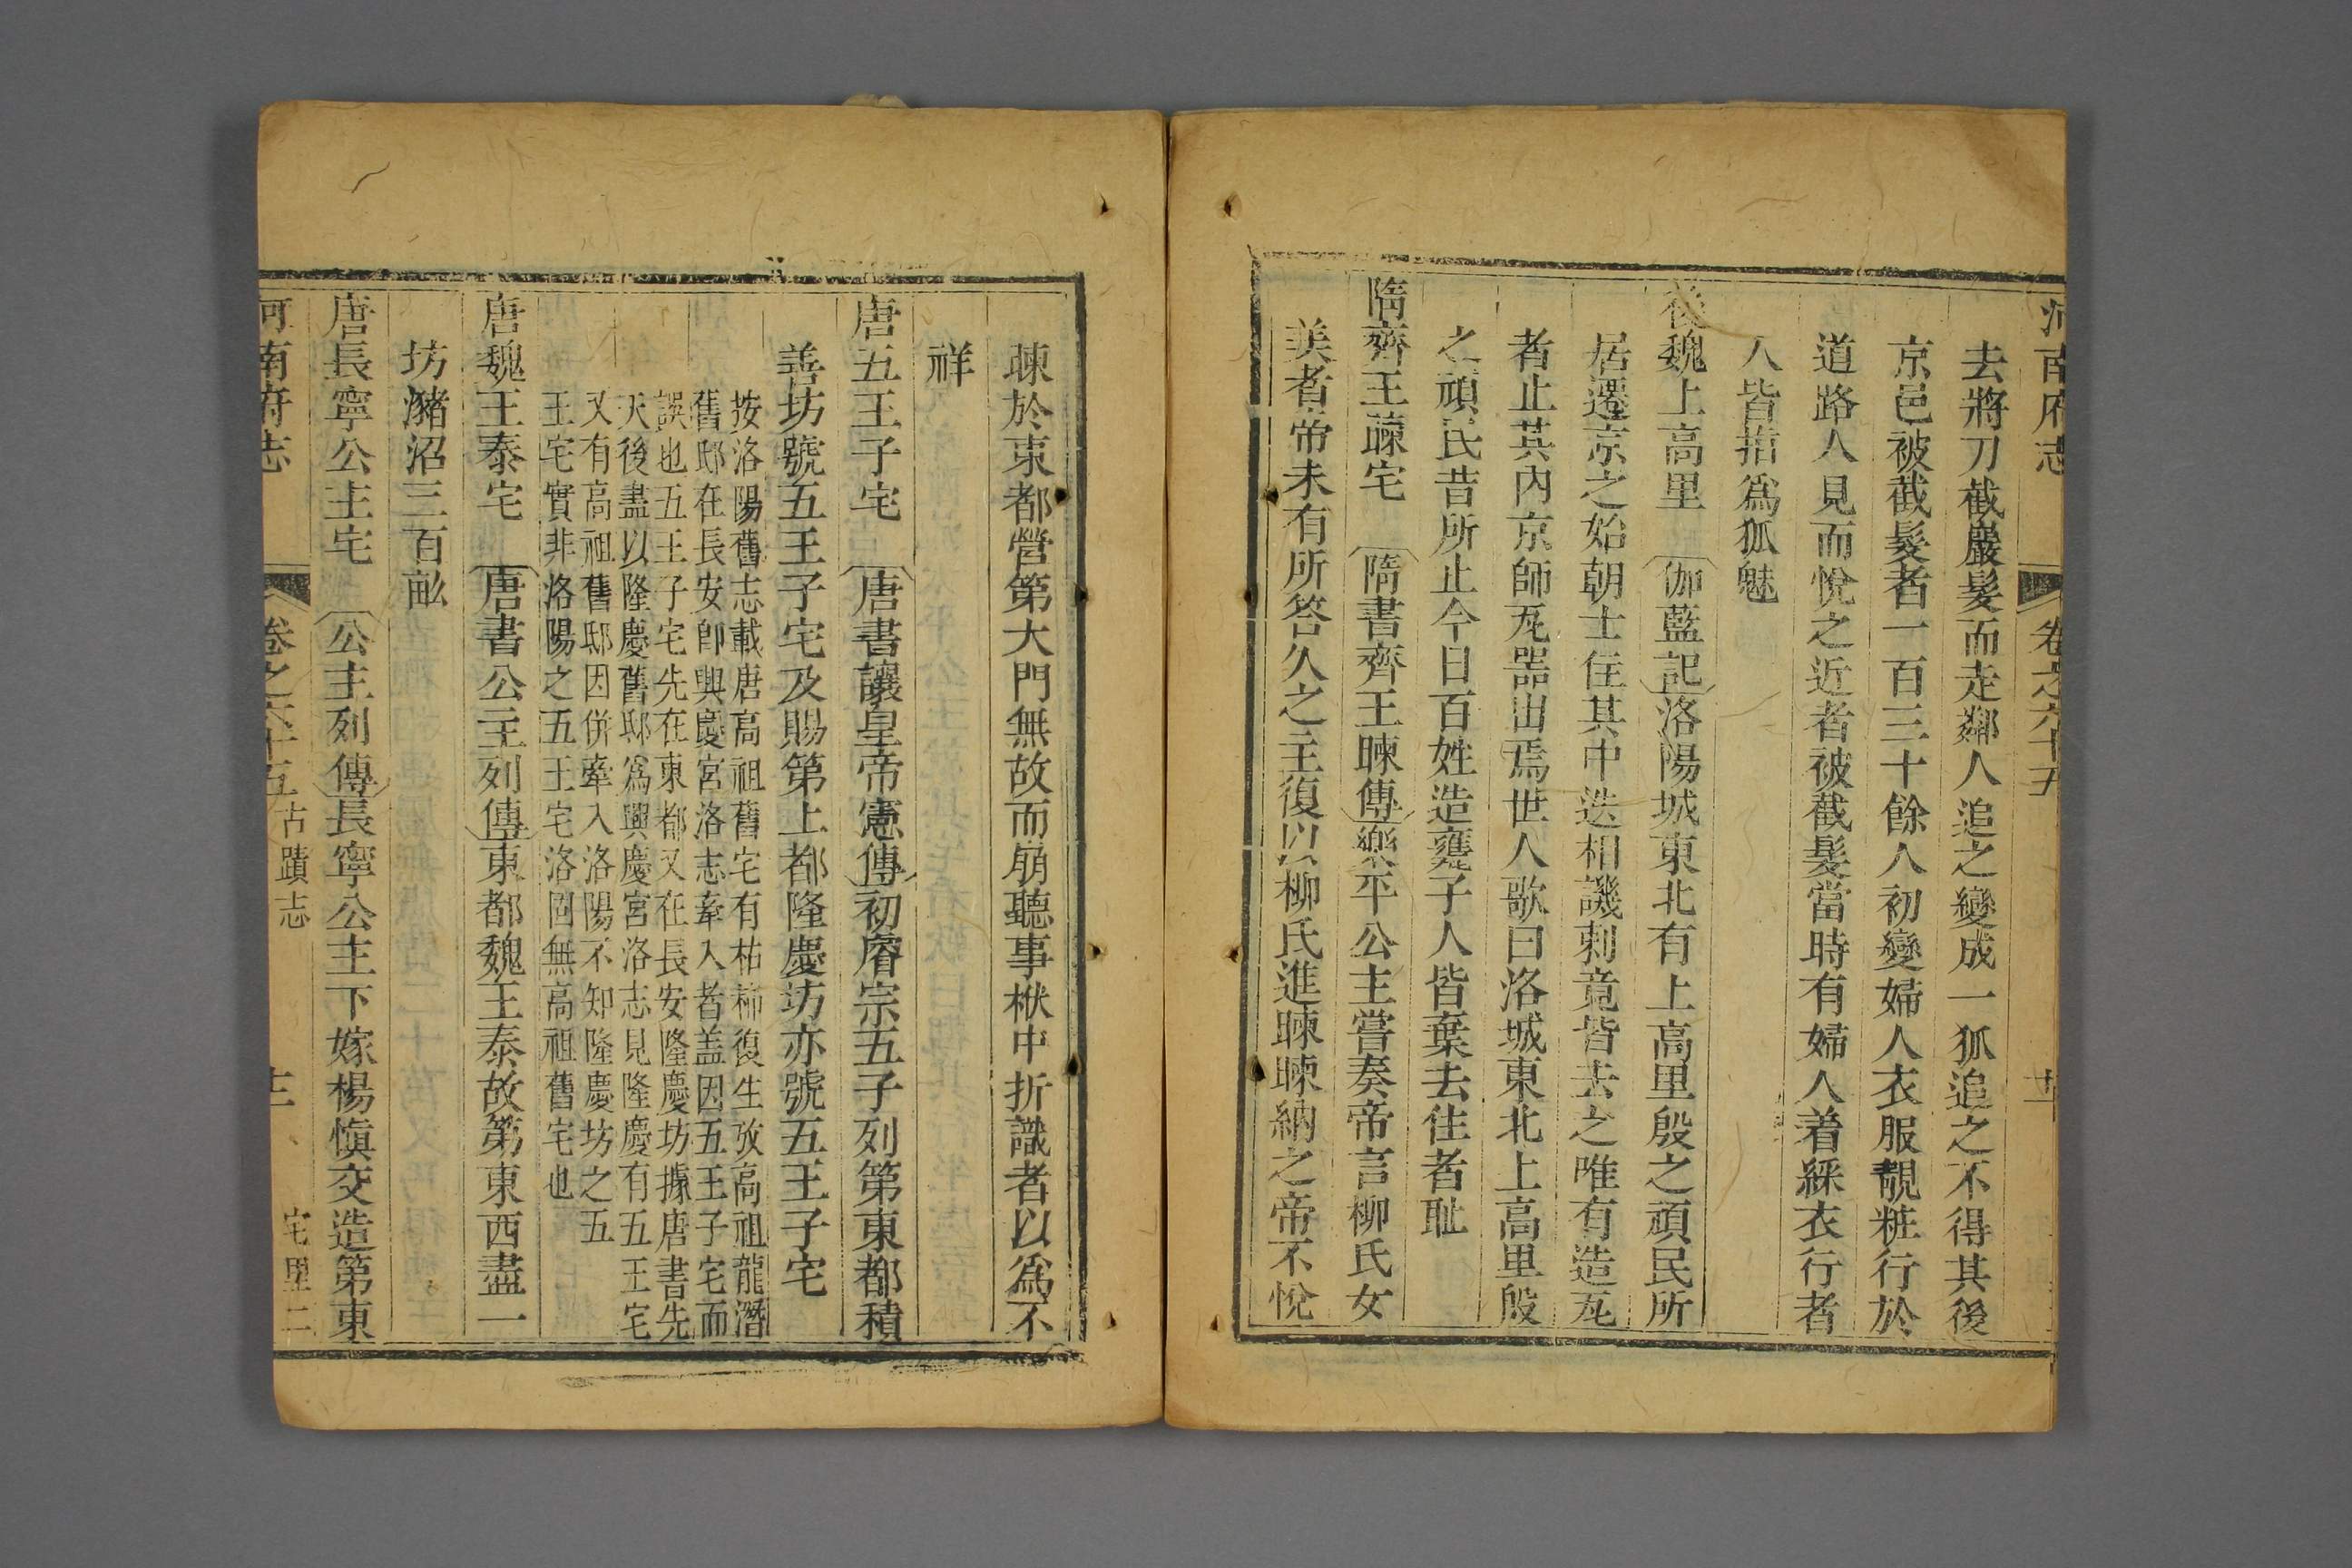 河南府志 卷之六十五
去將刀截嚴髮而走鄰人追之變成一狐追之不得其後
京邑被截髮者一百三十餘人初變婦人衣服靚粧行於
道路人見而悅之近者被截髮當時有婦人着綵衣行者
人皆指爲狐魅
後魏上高里 伽藍記洛陽城東北有上高里殷之頑民所
居遷京之始朝士住其中迭相譏刺竟皆去之唯有造瓦
者止其內京師瓦器出焉世人歌曰洛城東北上高里殷
之頑民昔所止今日百姓造甕子人皆棄去住者耻
隋齊王暕宅 隋書齊王暕傳樂平公主嘗奏帝言柳氏女
美者帝未有所答久之主復以柳氏進暕暕納之帝不悅
暕於東都營第大門無故而崩聽事栿中折識者以爲不
祥
唐五王子宅 唐書讓皇帝憲傳初睿宗五子列第東都積
善坊號五王子宅及賜第上都隆慶坊亦號五王子宅
按洛陽舊志載唐高祖舊宅有枯柿復生攷高祖龍潛
舊邸在長安卽興慶宮洛志牽入者盖因五王子宅而
誤也五王子宅先在東都又在長安隆慶坊據唐書先
天後盡以隆慶舊邸爲興慶宮洛志見隆慶有五王宅
又有高祖舊邸因併牽入洛陽不知隆慶坊之五
王宅實非洛陽之五王宅洛固無高祖舊宅也
唐魏王泰宅 唐書公主列傳東都魏王泰故第東西盡一
坊瀦沼三百畝
唐長寧公主宅 公主列傳長寧公主下嫁楊愼交造第東
河南府志 卷之六十五 古蹟志 宅里二